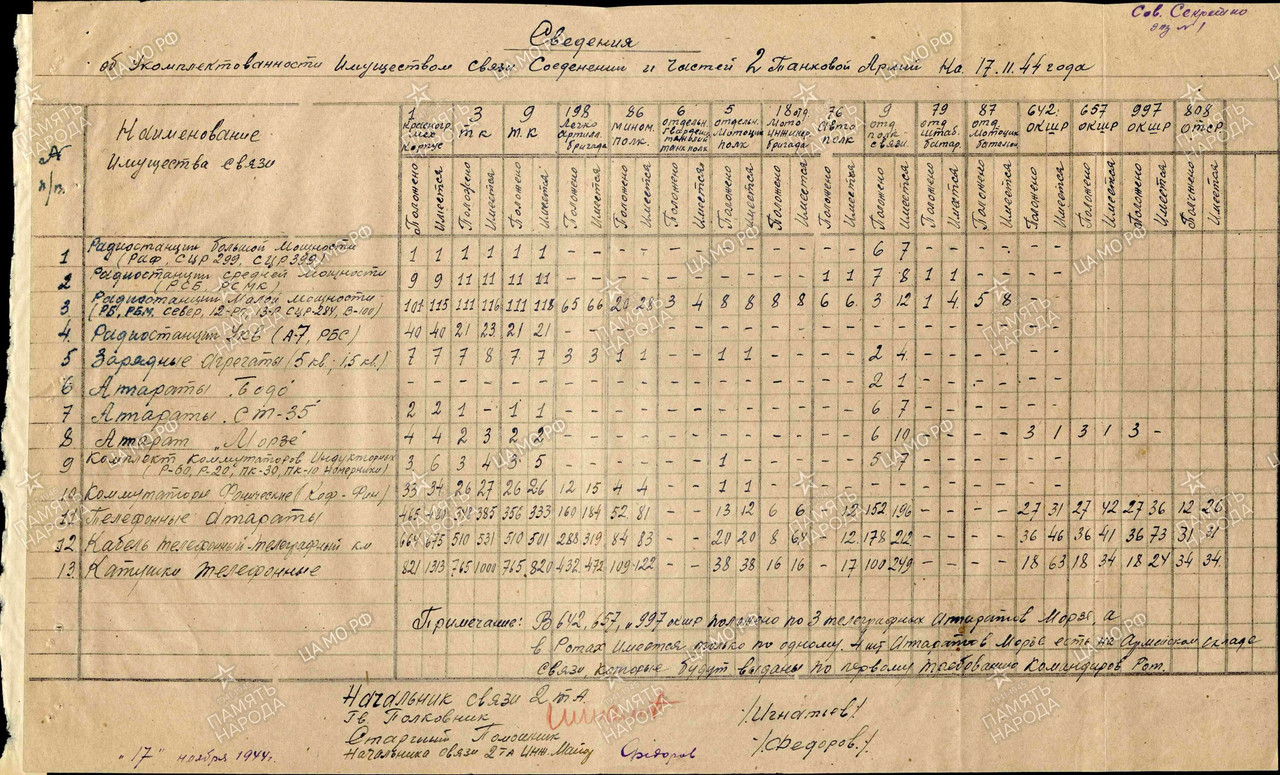 Сов. Секретно
экз № 1
Сведения
об Укомплектованности Имуществом связи Соеденений и Частей 2 Танковой Армии На 17.11.44 года
№ п/п. Наименование Имущества связи
1 Красногр. мех корпус
3 тк
9 тк
198 Легко артилл. бригада
86 мином. полк.
6 отдельн. гвардейск. танковый полк
5 отдельн. Мотоцикл полк
18 отд. Мото инжинер. бригада
76 Авто полк
9 отд полк связи.
79 отд штаб. батар.
87 отд. Мотоцикл баталион
642 ОКШР
657 ОКШР
997 ОКШР
808 ОТСР
Положено Имеется Положено Имеется Положено Имеется Положено Имеется Положено Имеется Положено Имеется Положено Имеется Положено Имеется Положено Имеется Положено Имеется Положено Имеется Положено Имеется Положено Имеется Положено Имеется Положено Имеется Положено Имеется
1 Радиостанции большой мощности (РАФ, СЦР 299, СЦР 399) 1 1 1 1 1 1 - - - - - - - - - - - - 6 7 - - - - - -
2 Радиостанции средней мощности (РСБ, РСМК) 9 9 11 11 11 11 - - - - - - - - - - 1 1 7 8 1 1 - - - -
3. Радиостанции Малой мощности (РБ, РБМ, Север, 12-РП, 13-Р, СЦР-284, В-100) 101 115 111 116 111 118 65 66 20 28 3 4 8 8 8 8 6 6 3 12 1 4 5 8 - -
4. Радиостанции Укв (А-7, РБС) 40 40 21 23 21 21 - - - - - - - - - - - - - - - - - - - -
5 Зарядные агрегаты (5 кв., 1,5 кв.) 7 7 7 8 7 7 3 3 1 1 - - 1 1 - - - - 2 4 - - - - - -
6 Апараты Бодо - - - - - - - - - - - - - - - - - - 2 1 - - - - - -
7 Апараты СТ-35 2 2 1 - 1 1 - - - - - - - - - - - - 6 7 - - - - - -
8 Апарат „Морзе" 4 4 2 3 2 2 - - - - - - - - - - - - 6 10 - - - - 3 1 3 1 3 -
9 Комплект Коммутаторов Индукторных (Р-60, Р-20, ПК-30, ПК-10 Номерники) 3 6 3 4 3 5 - - - - - - 1 - - - - - 5 7 - - - - - -
10 Коммутаторы Фонические (Коф-Фин) 33 34 26 27 26 26 12 15 4 4 - - 1 1 - - - - - - - - - -
11 Телефонные Апараты 465 385 356 333 160 184 52 81 - - 13 12 6 6 - 12 152 196 - - - - 27 31 27 42 27 36 12 26
12 Кабель телефонный-телеграфный км 664 675 510 531 510 501 288 319 84 83 - - 20 20 8 - 12 178 212 - - - - 36 46 36 41 36 73 31 31
13 Катушки телефонные 821 1313 765 1000 765 820 432 472 109 122 - - 38 38 16 16 - 17 100 249 - - - - 18 63 18 34 18 24 34 34
Примечание: В 642, 657, и 997 окшр положено по 3 телеграфных Апаратов Морзе, а
в Ротах Имеется только по одному. 4 шт Апаратов Морзе есть на Армейском складе
связи, которые будут выданы по первому требованию Командиров Рот.
Начальник связи 2 тА.
Гв. Полковник /Игнатьев/
Старший Помошник
Начальника связи 2 тА Инж. Майор Федоров /Федоров./
„17" ноября 1944г.
ЦАМО РФ
ПАМЯТЬ НАРОДА